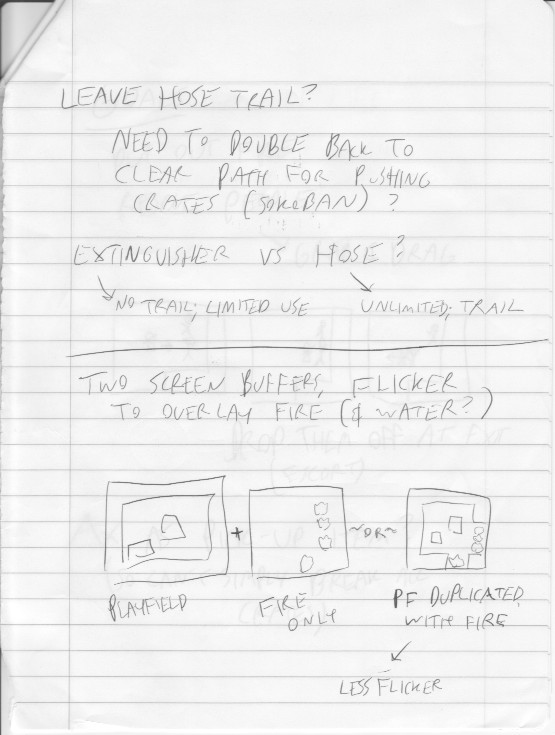 LEAVE HOSE TRAIL?
NEED TO DOUBLE BACK TO
CLEAR PATH FOR PUSHING
CRATES (SOKOBAN)?
EXTINGUISHER VS HOSE?
NO TRAIL; LIMITED USE UNLIMITED; TRAIL
TWO SCREEN BUFFERS, FLICKER
TO OVERLAY FIRE (& WATER?)
+ ~OR~
PLAYFIELD FIRE ONLY PF DUPLICATED WITH FIRE
LESS FLICKER
DROP THEM OFF AT EXIT